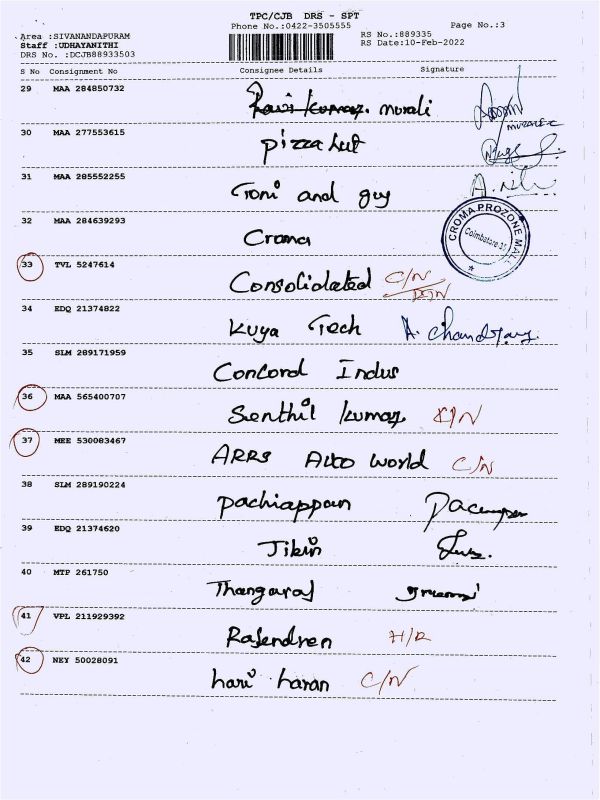 TPC/CJB DRS - SPT
Phone No.:0422-3505555 Page No.:3
Area :SIVANANDAPURAM
Staff :UDHAYANITHI
DRS No. :DCJB88933503
RS No.:889335
RS Date:10-Feb-2022
S No Consignment No Consignee Details Signature
29 MAA 284850732 Ravi kumar. murali
30 MAA 277553615 pizza hut
31 MAA 285552255 Toni and guy
32 MAA 284639293 Croma
CROMA PROZONE MALL
Coimbatore-35
33 TVL 5247614 Consolidated C/N
34 EDQ 21374822 Kuya Tech A. Chandran.
35 SLM 289171959 Concord Indus
36 MAA 565400707 Senthil kumar C/N
37 MEE 530083467 ARRS Auto World C/N
38 SLM 289190224 pachiappan
39 EDQ 21374620 Jibin
40 MTP 261750 Thangaraj
41 VPL 211929392 Rajendren H/R
42 NEY 50028091 hari haran C/N